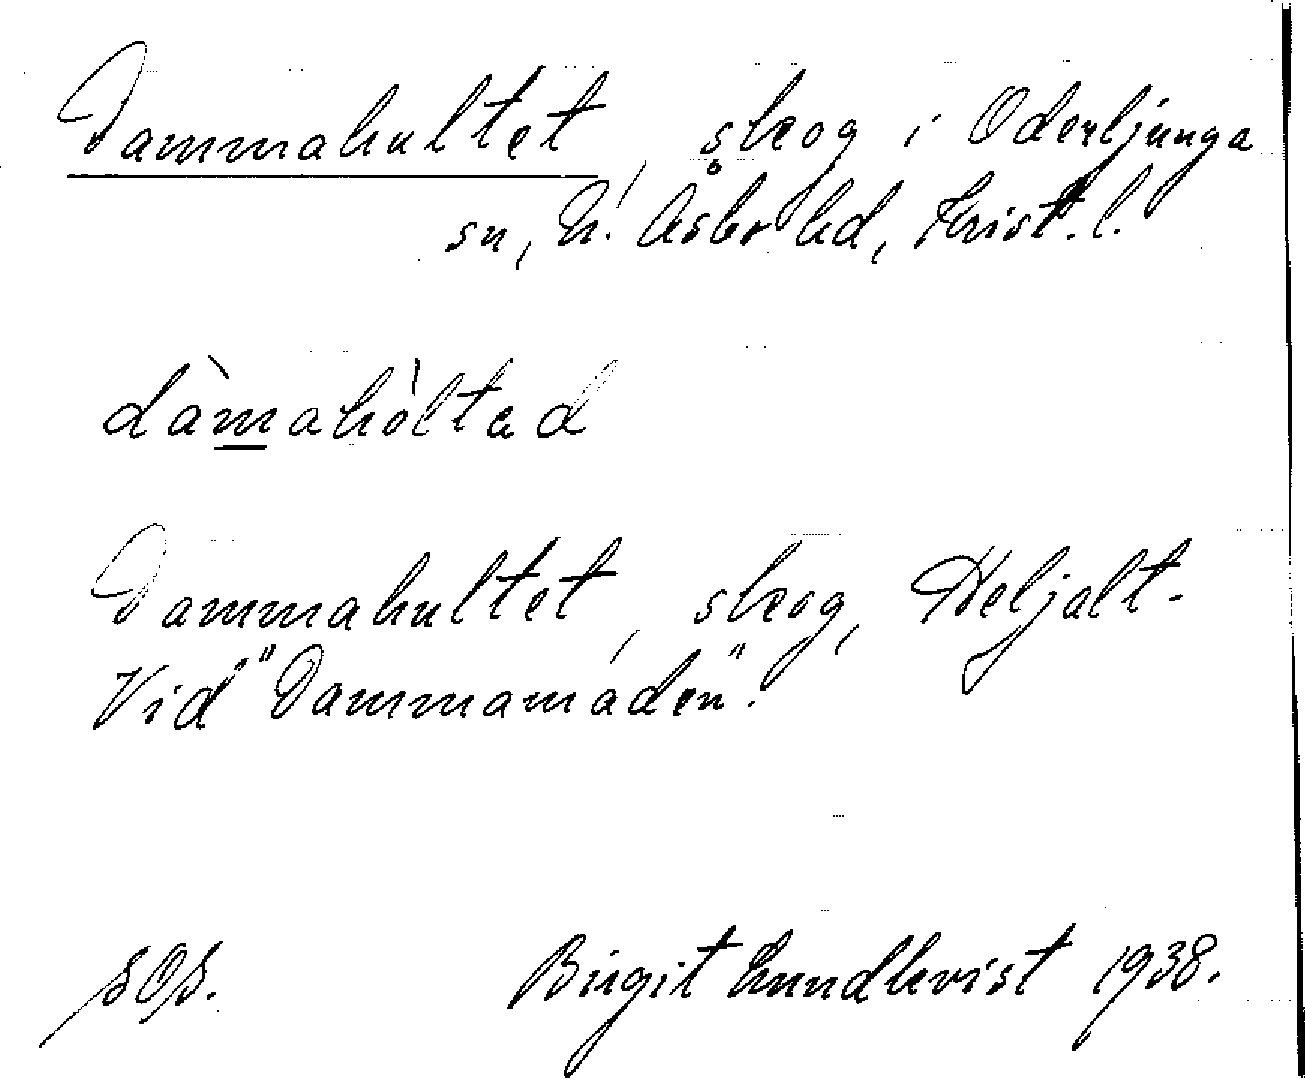 Dammahultet, skog i Oderljunga
sn, N. Åsbo hd, Krist. l.
dàmahòltəd
Dammahultet, skog, Heljalt-
Vid "Dammamaden".
SOS. Birgit Lundkvist 1938.